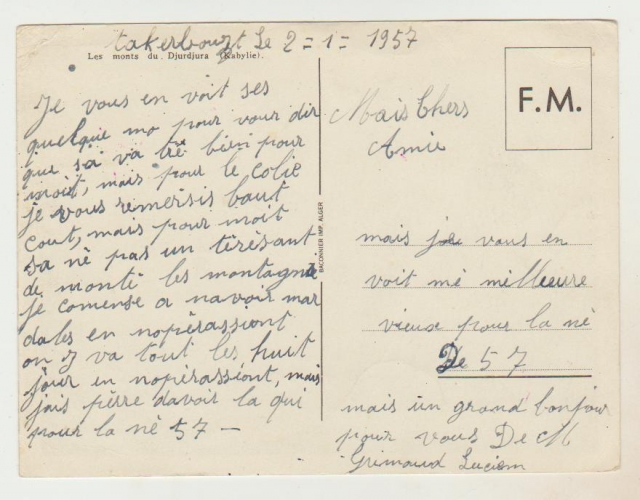 takerbouzt Le 2=1= 1957
Les monts du Djurdjura (Kabylie).
Je vous en voit ses
quelque mo pour vour dir
que sa va trè bien pour
moit, mais pour le colie
je vous remersis baut
cout, mais pour moit
sa nè pas un tèrèsant
de montè les montagnè
je comense a navoir mar
dales en nopèrassiont
on y va tout les huit
jour en nopèrassiont, mais
jais pierre davoit la qui
pour la nè 57 —
BACONNIER IMP. ALGER
F.M.
Mais Chers
Amie
mais je vous en
voit mè milleure
vieux pour la nè
De 57
mais un grand bonjour
pour vous De M
Grimaud Lucien